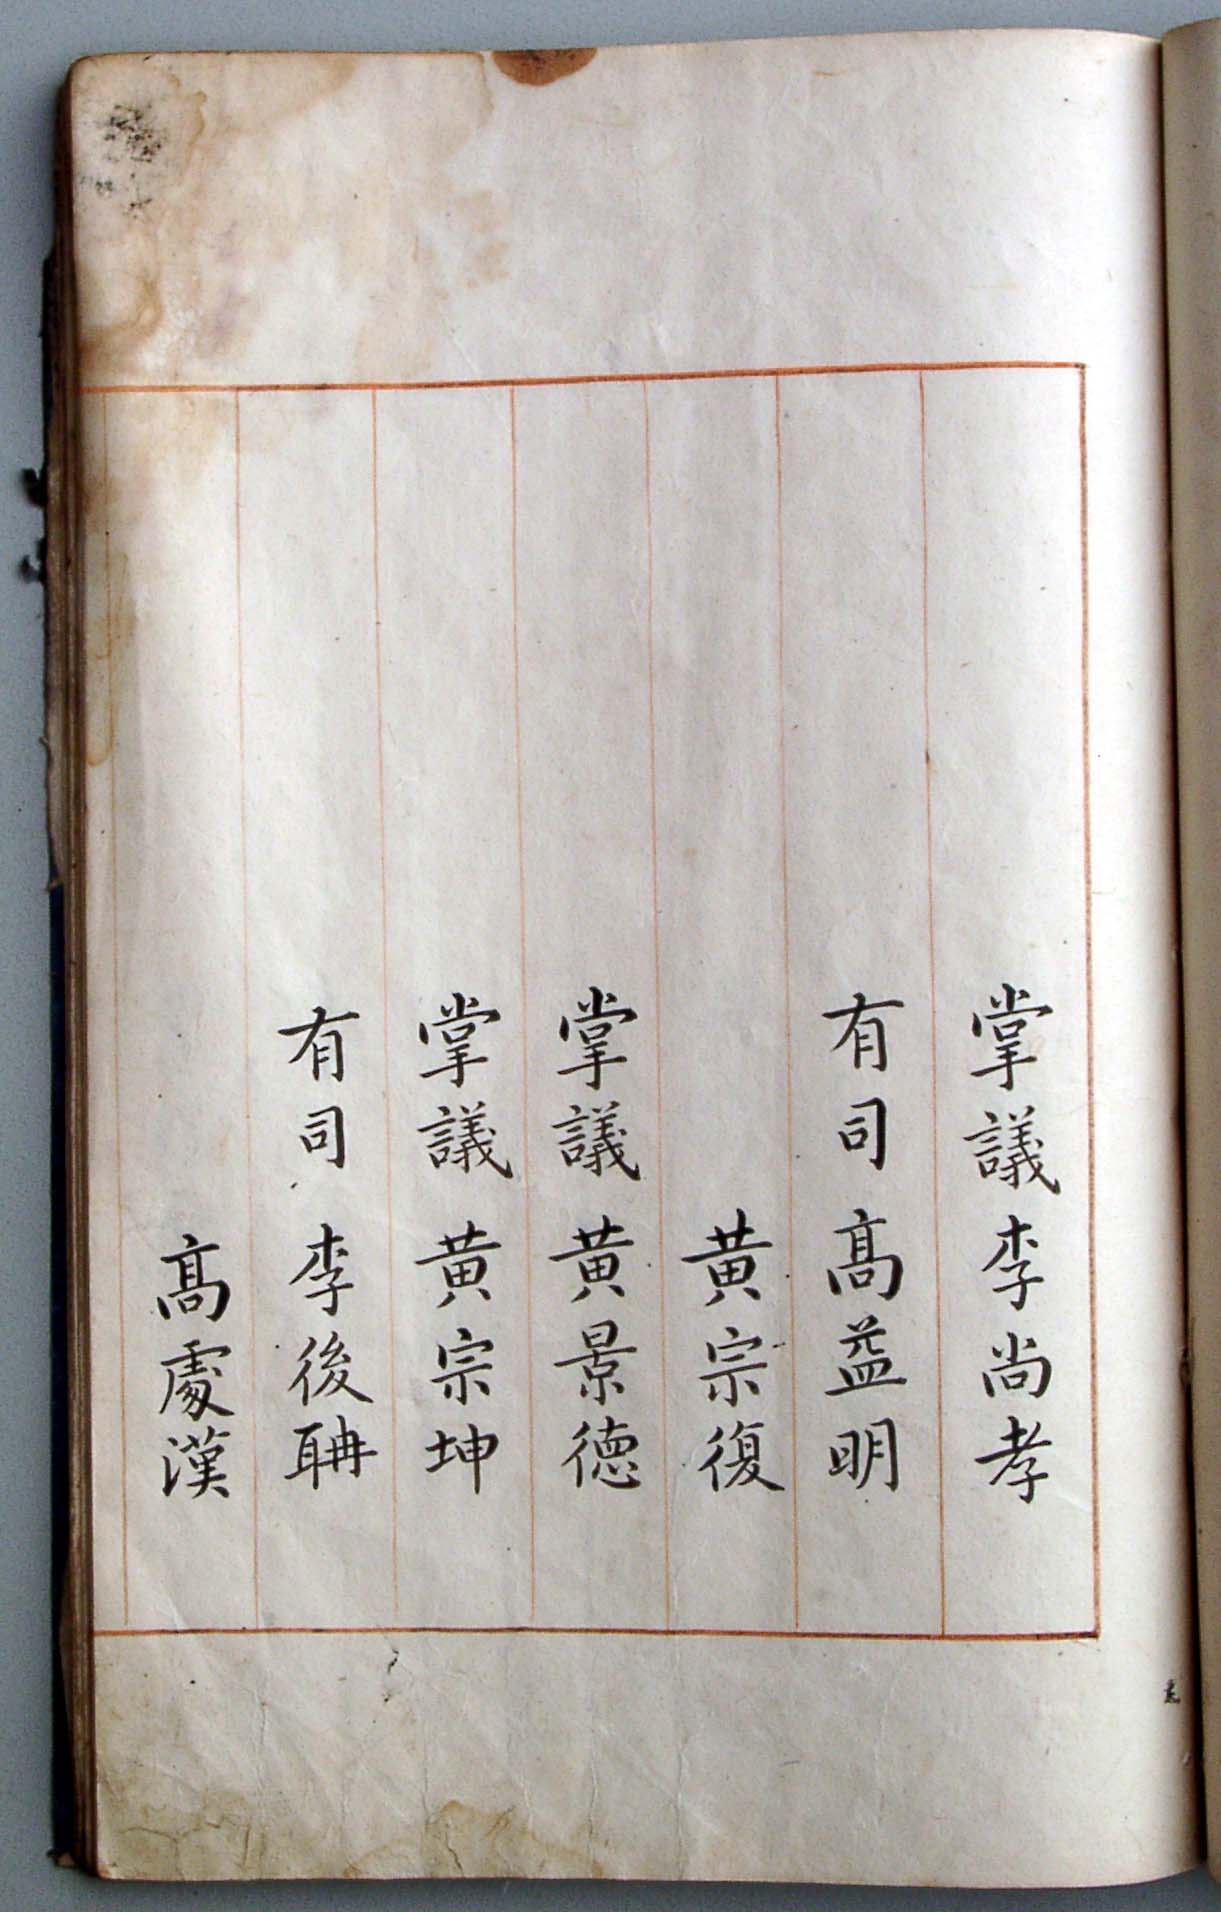 掌議李尚孝
有司高益明
黃宗復
掌議黃景德
掌議黃宗坤
有司李後聃
高處漢